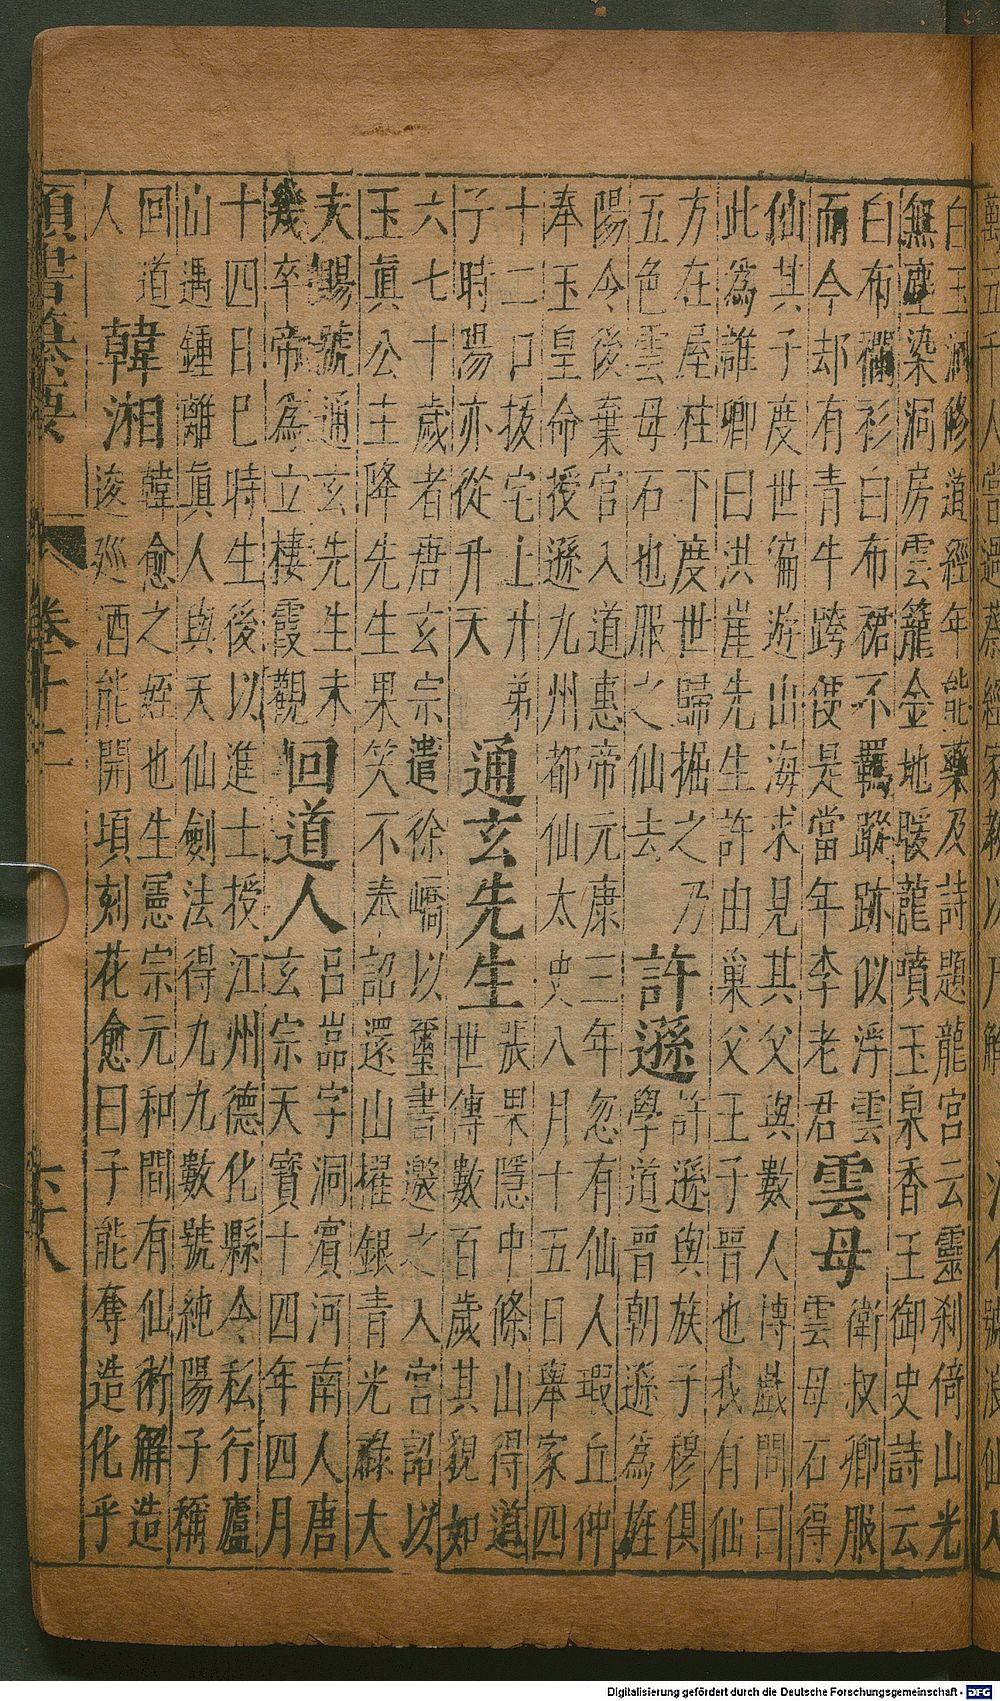 白玉洞修道經年能藥及詩題龍宮云靈刹倚山光
無塵染洞房雲籠金地暖龍噴玉泉香王御史詩云
白布襴衫白布裙不羈蹤跡似浮雲
而今却有青牛跨便是當年李老君
雲母
衛叔卿服
雲母石得
仙其子度世徧遊山海求見其父與數人博戲問曰
此為誰卿曰洪崖先生許由巢父王子晉也我有仙
方在屋柱下度世歸掘之乃
五色雲母石也服之仙去
許遜
許遜與族子穆俱
學道晉朝遜為旌
陽令後棄官入道惠帝元康三年忽有仙人瑕丘仲
奉玉皇命授遜九州都仙太史八月十五日舉家四
十二口拔宅上升弟
子時陽亦從升天
通玄先生
張果隱中條山得道
世傳數百歲其貌如
六七十歲者唐玄宗遣徐嶠以璽書邀之入宮詔以
玉眞公主降先生果笑不奉詔還山擢銀青光祿大
夫賜號通玄先生未
幾卒帝為立棲霞觀
回道人
呂嵓字洞濱河南人唐
玄宗天寶十四年四月
十四日巳時生後以進士授江州德化縣令私行廬
山遇鍾離眞人與天仙劍法得九九數號純陽子稱
回道
人
韓湘
韓愈之姪也生憲宗元和間有仙術解造
逡巡酒能開頃刻花愈曰子能奪造化乎
類書纂要
卷十二
六十八
Digitalisierung gefördert durch die Deutsche Forschungsgemeinschaft - DFG